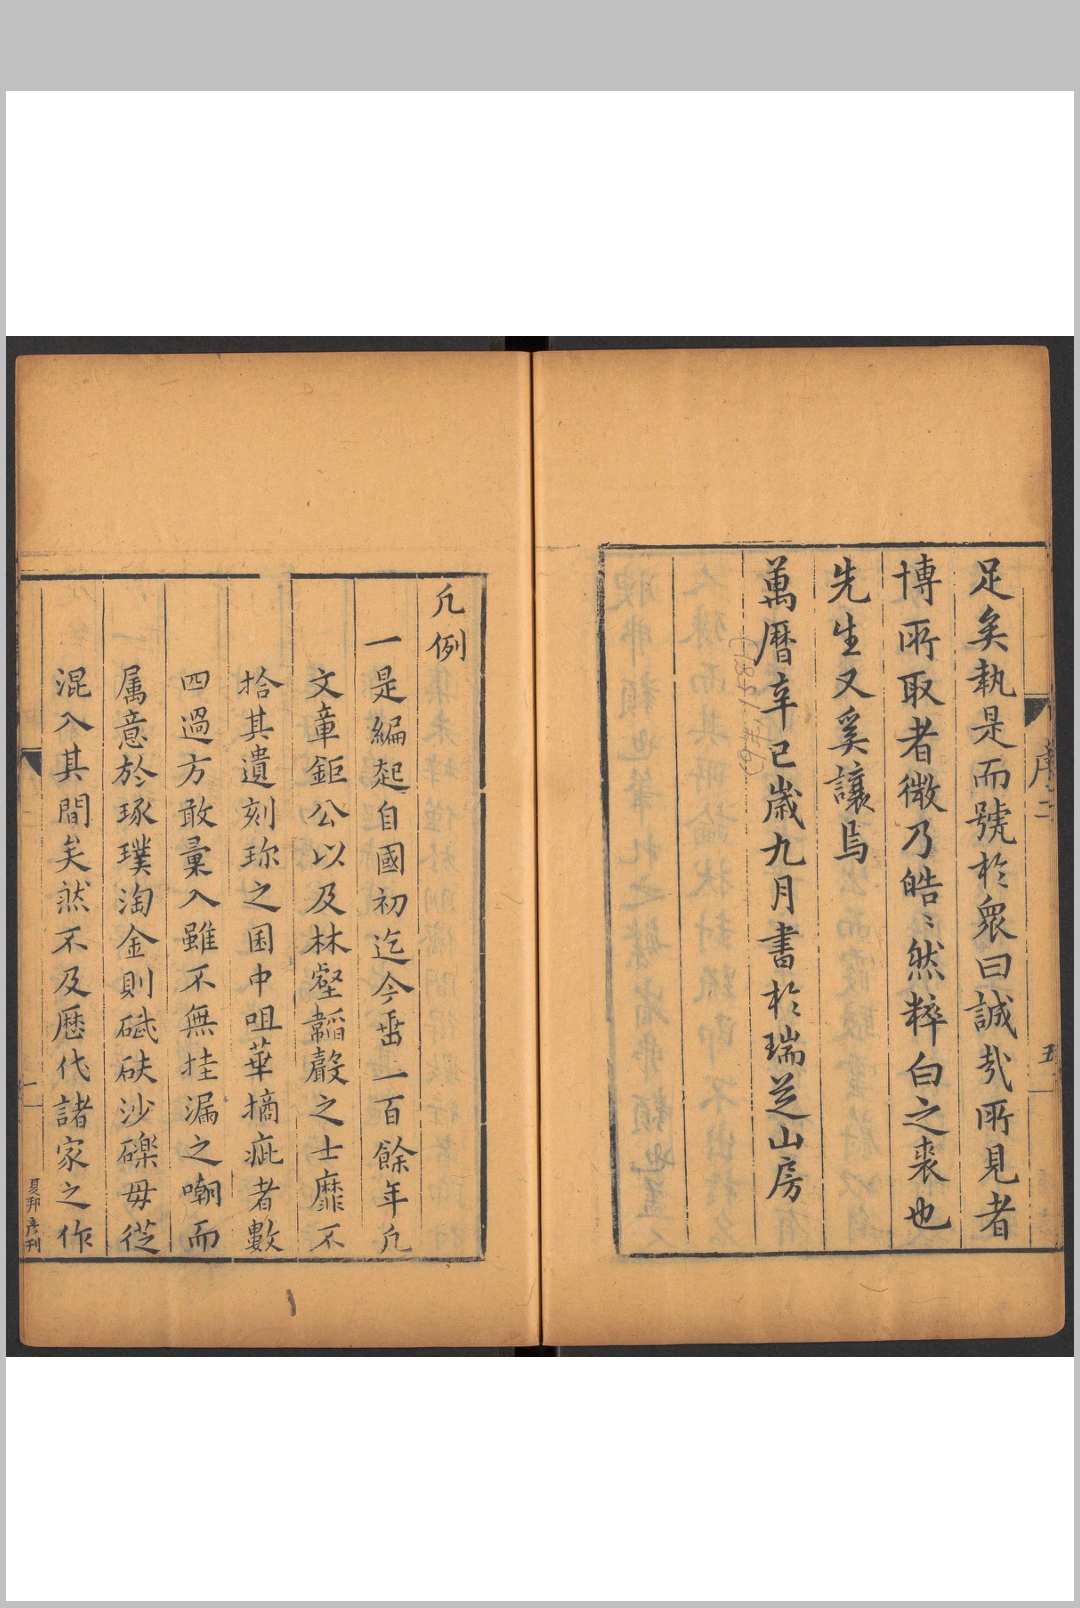 足矣執是而號於衆曰誠哉所見者
博所取者微乃皓〻然粹白之裘也
先生又奚讓焉
萬曆辛巳歲九月書於瑞芝山房
凡例
一是編起自國初迄今畨一百餘年凡
文章鉅公以及林壑韜聲之士靡不
拾其遺刻珎之囷中咀華摘疵者數
四過方敢彙入雖不無挂漏之嘲而
属意於琢璞淘金則碔砆沙礫毋從
混入其間矣然不及歷代諸家之作
序二
五
一
夏邦彦刊